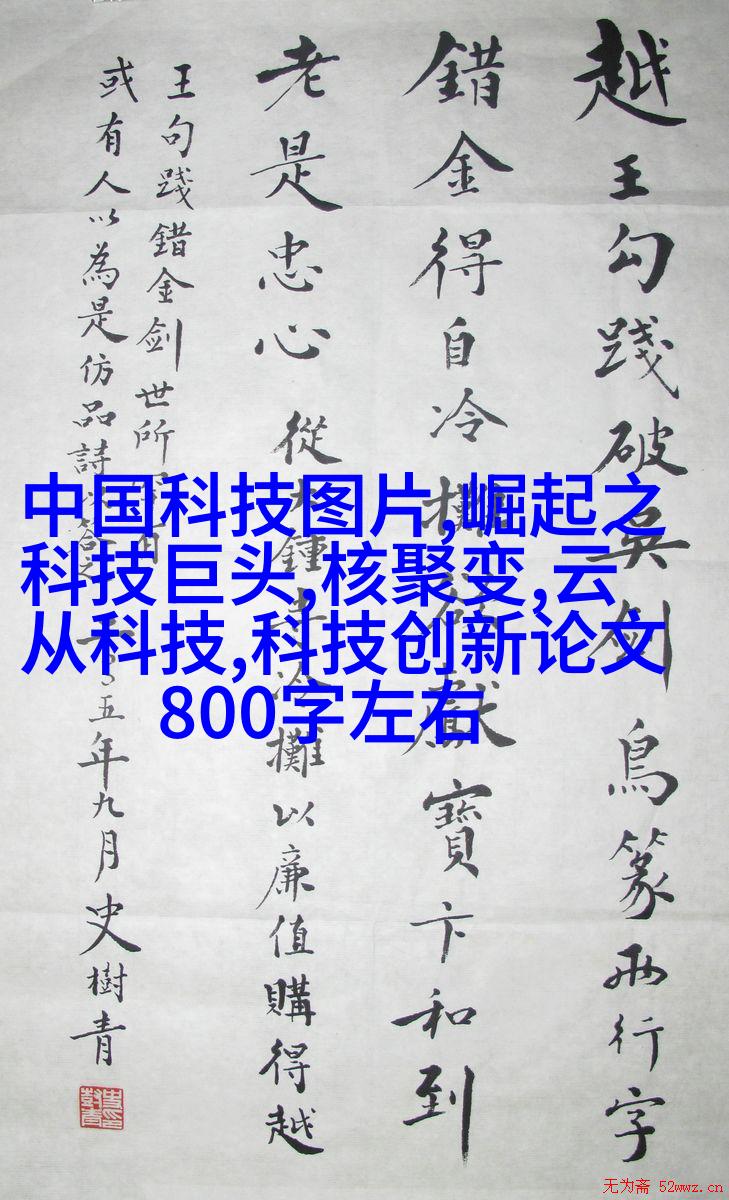 越王勾踐破吳劍鳥篆兩行字
錯金得自冷攤欲獻寶卞和到
老是忠心 從大鍾寺冷攤以廉值購得越
王句踐錯金剑世所
或有人以為是仿品詩以答之 二〇〇五年九月史樹青
中国科技图片,崛起之
科技巨头,核聚变,云
从科技,科技创新论文
800字左右
无为斋 52wwz.cn